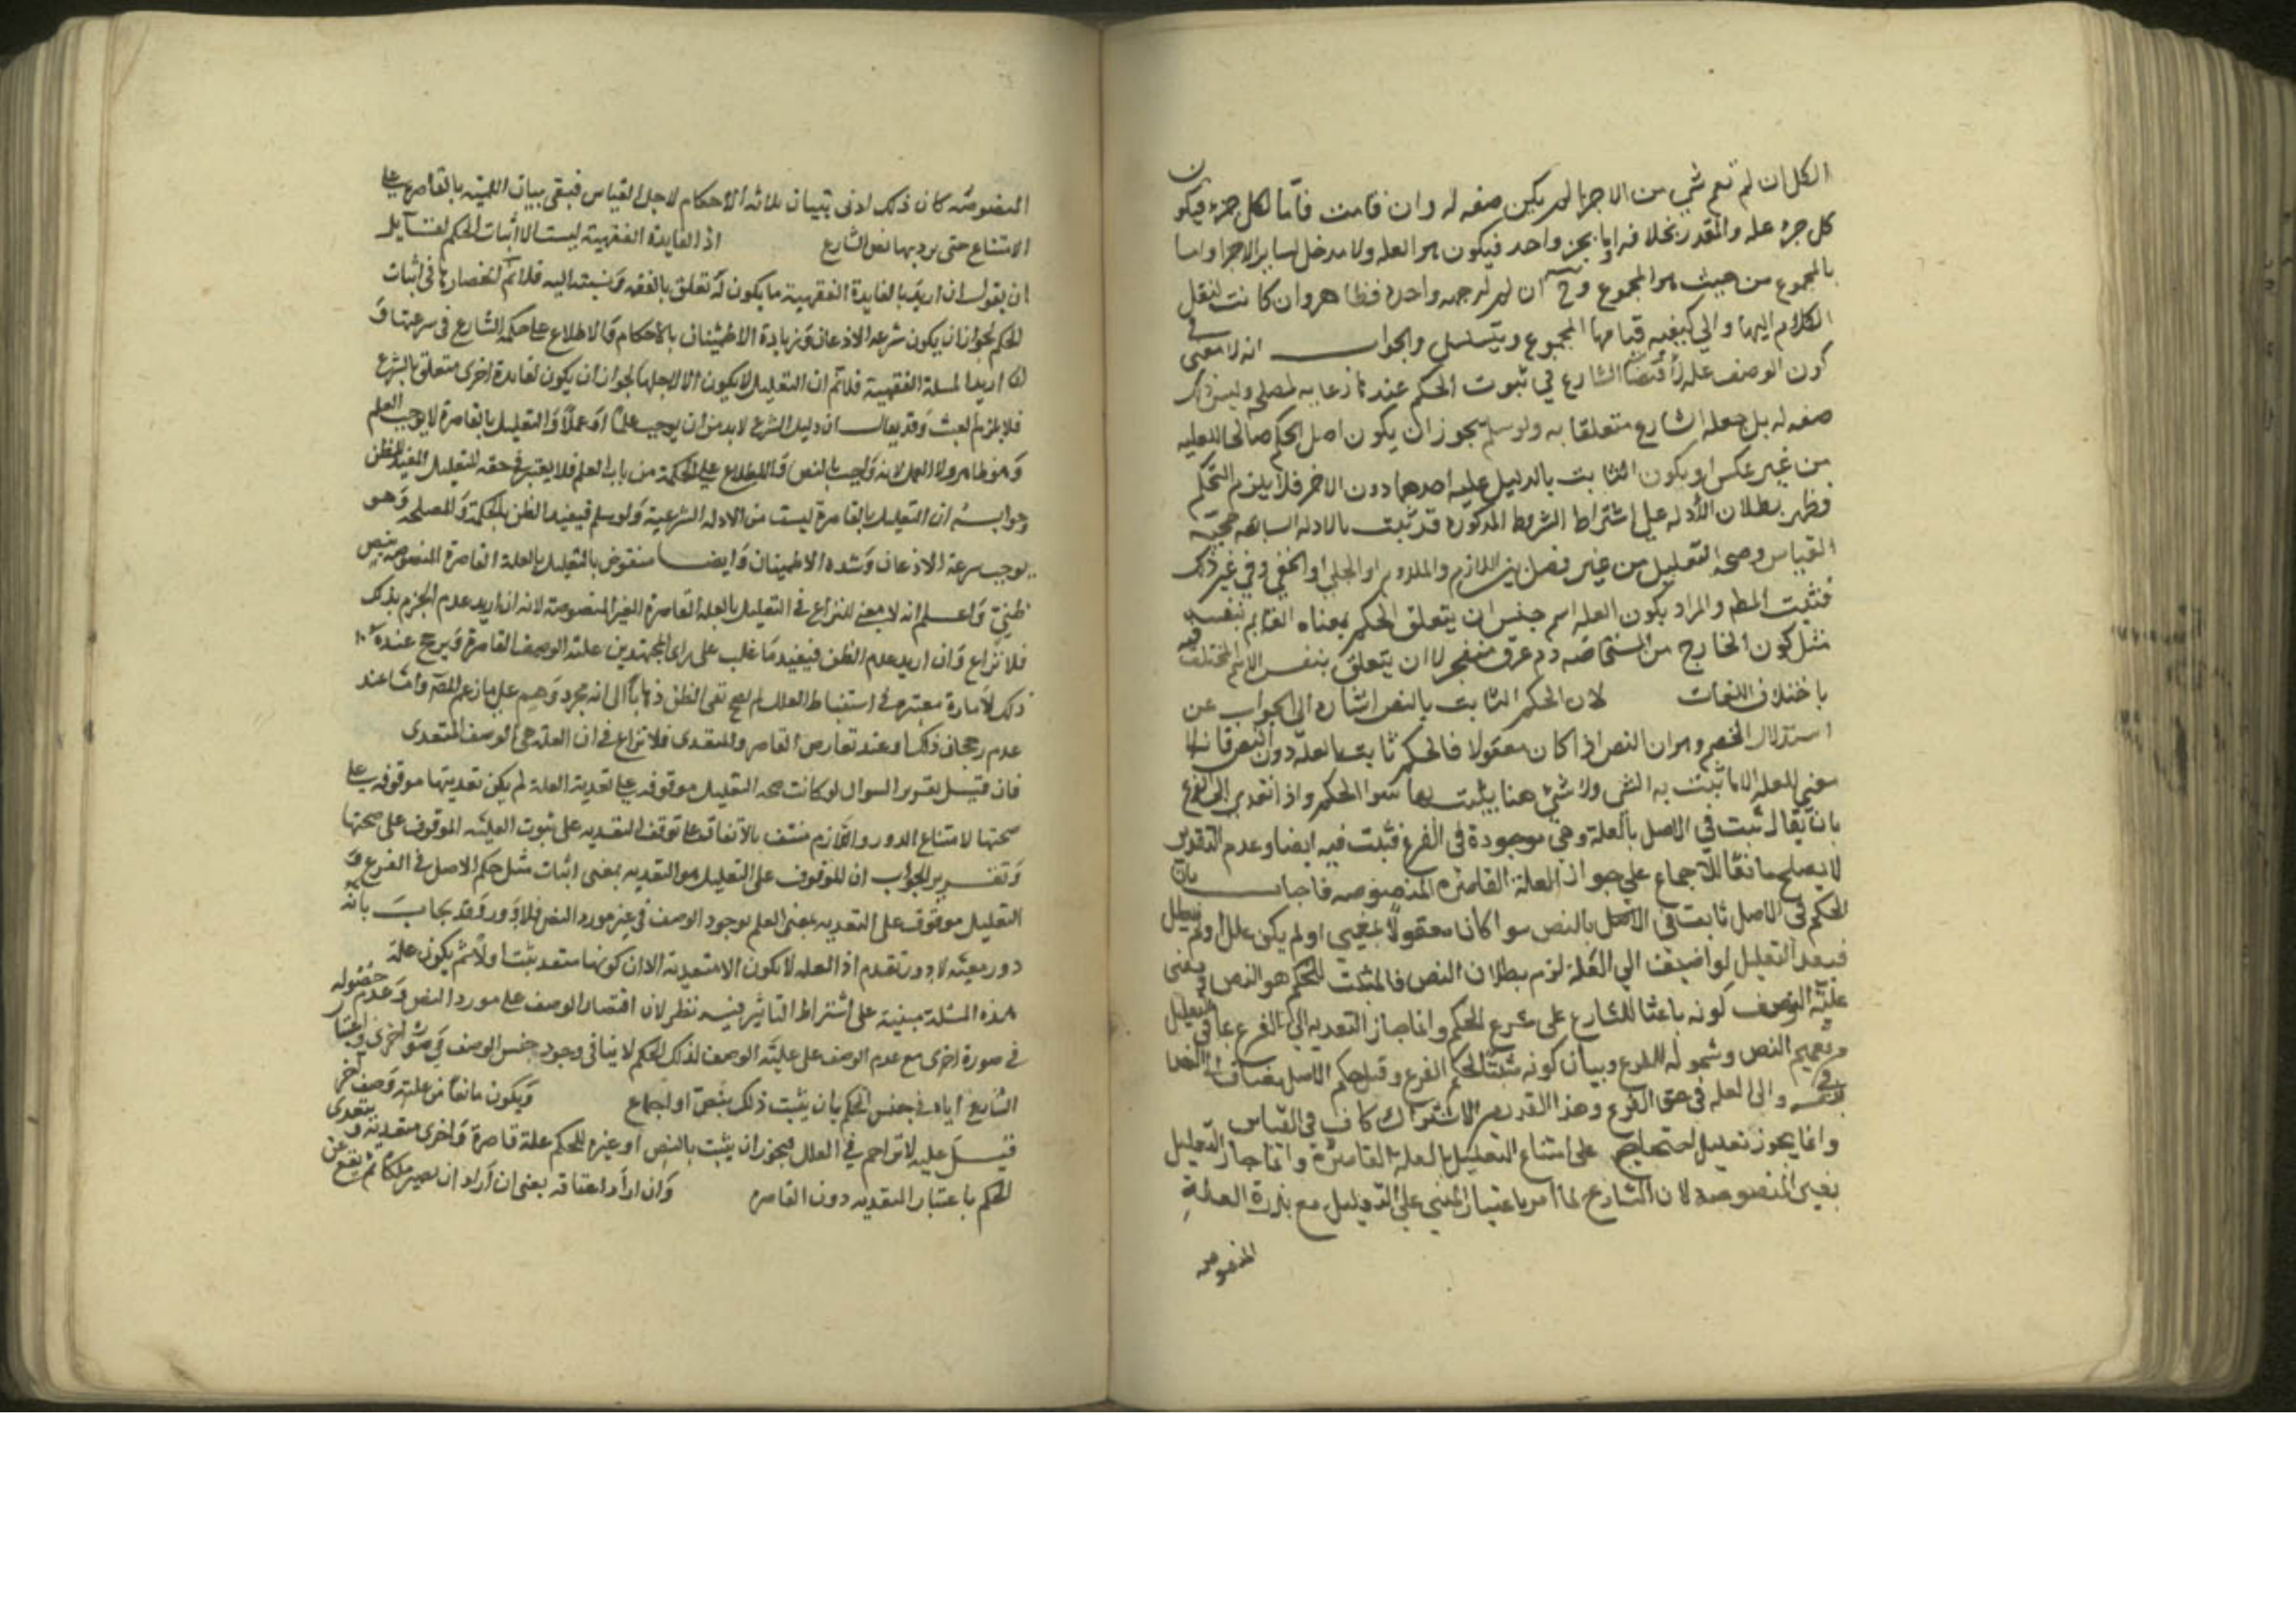 الكل ان لم تقم شي من الاجزا لم يكن صفه له وان قامت فاما لكل جزء فيكون
كل جزء عله والمقدر بخلافه اوبا بجزء واحد فيكون هو العله ولا مدخل لساير الاجزا واما
بالمجموع من حيث هو المجموع وح ان لم لوجهه واحده فظاهر وان كانت لننقل
الكلام اليها والى كيفيه قيامها المجموع ويتسلسل والجواب انه لا معنى
كون الوصف عله لا قتضا الشارع في ثبوت الحكم عند ما رعايه لمصلحه وليس ذلك
صفه له بل جعله الشارع متعلقا به ولو سلم يجوز ان يكون اصل الحكم صالحا للعليه
من غير عكس او يكون الثابت بالدليل عليه احدهما دون الاخر فلا يلزم التحكم
فظهر بطلان الأدله على اشتراط الشروط المذكوره قد ثبت بالادله السابقه حجيه
القياس وصحه التعليل من غير فصل بين اللازم والملزوم او الجلي او الخفي وفي غير ذلك
فثبت المط والمراد بكون العله اسم جنس ان يتعلق الحكم بمعناه القايم بنفسه
مثل كون الخارج من المستحاضه دم عرق منفجر لا ان يتعلق بنفس الاسم المختلف
باختلاف اللغات لان الحكم الثابت بالنص اشاره الى الجواب عن
استدلال الخصم وهو ان النص اذا كان معقولا فالحكم ثابت بالعله دون النص فانه لا
معني للعله الا ما ثبت به الشي ولا شي هنا يثبت بها سوا الحكم واذا تعدي الى الفرع
بان يقال ثبت في الاصل بالعلة وهي موجودة في الفرع فثبت فيه ايضا وعدم التعدي
لا يصلح مانعا للاجماع علي جواز العلة القاصره المنصوصه فاجاب بان
الحكم في الاصل ثابت في الاصل بالنص سوا كان معقولا لمعني او لم يكن علل ولم يعلل
فبعد التعليل لو اضيف الي العلة لزم بطلان النص فالمثبت للحكم هو النص ومعنى
علية الوصف كونه باعثا للشارع على شرع الحكم وانما جاز التعديه الي الفرع عافي التعليل
من تعميم النص وشموله للفرع وبيان كونه مثبتا لحكم الفرع وقبل حكم الاصل مضاف الي النص
في نفسه والى العله في حق الفرع وهذا القدر من الاشتراك كاف في القياس
وانما يجوز تعليل احتجاج على امتناع التعليل بالعلة القاصرة وانما جاز التعليل
بغير المنصوصه لان الشارع لما امر باعتبار المبني على التعليل مع ندرة العلة
المنصوصه
المنصوصه كان ذلك لدنى بتبيان بلاته الاحكام لاجل القياس فبقى بيان اللمية بالقاصرة على
الامتناع حتى يرد بها نص الشارع اذ الفايدة الفقهية ليست الا اثبات الحكم لقايل
ان يقول ان اريد بالفايدة الفقهية ما يكون له تعلق بالفقه ونسبته اليه فلا نم انحصارها في اثبات
الحكم لجواز ان يكون سرعه الاذعان وزيادة الاطمئنان بالاحكام والاطلاع على حكمة الشارع في شرعيتها و
ان اريد المسلة الفقهية فلا نم ان التعليل لا يكون الا لاجلها لجواز ان يكون لفايدة اخرى متعلق بالشرع
فلا يلزم العبث وقد يقال ان دليل الشرع لابد من ان يوجب علما او عملا والتعليل بالقاصرة لا يوجب العلم
وهو ظاهر ولا العمل لانه واجب بالنص والاطلاع على الحكمة من باب العلم فلا يعتبر في حقه التعليل المفيد للظن
وجوابه ان التعليل بالقاصرة ليست من الادله الشرعية ولو سلم فيفيد الظن بالحكمة والمصلحه وهو
يوجب سرعة الاذعان وشده الاطمينان وايضا منقوض بالتعليل بالعلة القاصرة المنصوصه بنص
ظني واعلم انه لا معنى للنزاع في التعليل بالعله القاصرة الغير المنصوصة لانه ان اريد عدم الجزم بذلك
فلا نزاع وان اريد عدم الظن فيفيد ما غلب على راى المجتهدين علية الوصف القاصرة ويرجح عنده
ذلك لامارة معتبره في استنباط العلل لم يصح نفى الظن ذهابا الى انه مجرد وهم على ما زعم المص واما عند
عدم رجحان ذلك او عند تعارض القاصر والمتعدى فلا نزاع في ان العلة هي الوصف المتعدى
فان قيل تقرير السوال لو كانت صحه التعليل موقوفه على تعدية العلة لم يكن تعديتها موقوفه على
صحتها لامتناع الدور واللازم منتف بالاتفاق على توقف التعديه على ثبوت العلية الموقوف على صحتها
وتقرير الجواب ان الموقوف على التعليل هو التعديه بمعنى اثبات مثل حكم الاصل في الفرع و
التعليل موقوف على التعديه بمعنى العلم بوجود الوصف في غير مورد النص فلا دور وقد يجاب بانه
دور معية لا دور تقدم اذ العله لا تكون الا متعدية الا ان كونها متعد يثبت اولا ثم يكون علة
هذه المسئلة مبنية على اشتراط التاثير فيه نظر لان اقتصار الوصف على مورد النص وعدم حصوله
في صورة اخرى مع عدم الوصف على علية الوصف لذلك الحكم لا ينافى وجود جنس الوصف في صور اخرى واعتبار
الشارع اياه في جنس الحكم بان يثبت ذلك بنص او اجماع ويكون مانعا من علية وصف اخر
قيل عليه لا تزاحم في العلل فيجوز ان يثبت بالنص او غيره للحكم علة قاصرة واخرى متعدية ويتعدى
الحكم باعتبار المتعديه دون القاصره وان اراد اعتاقه يعنى ان اراد ان يصير ملكا ثم يقع عن